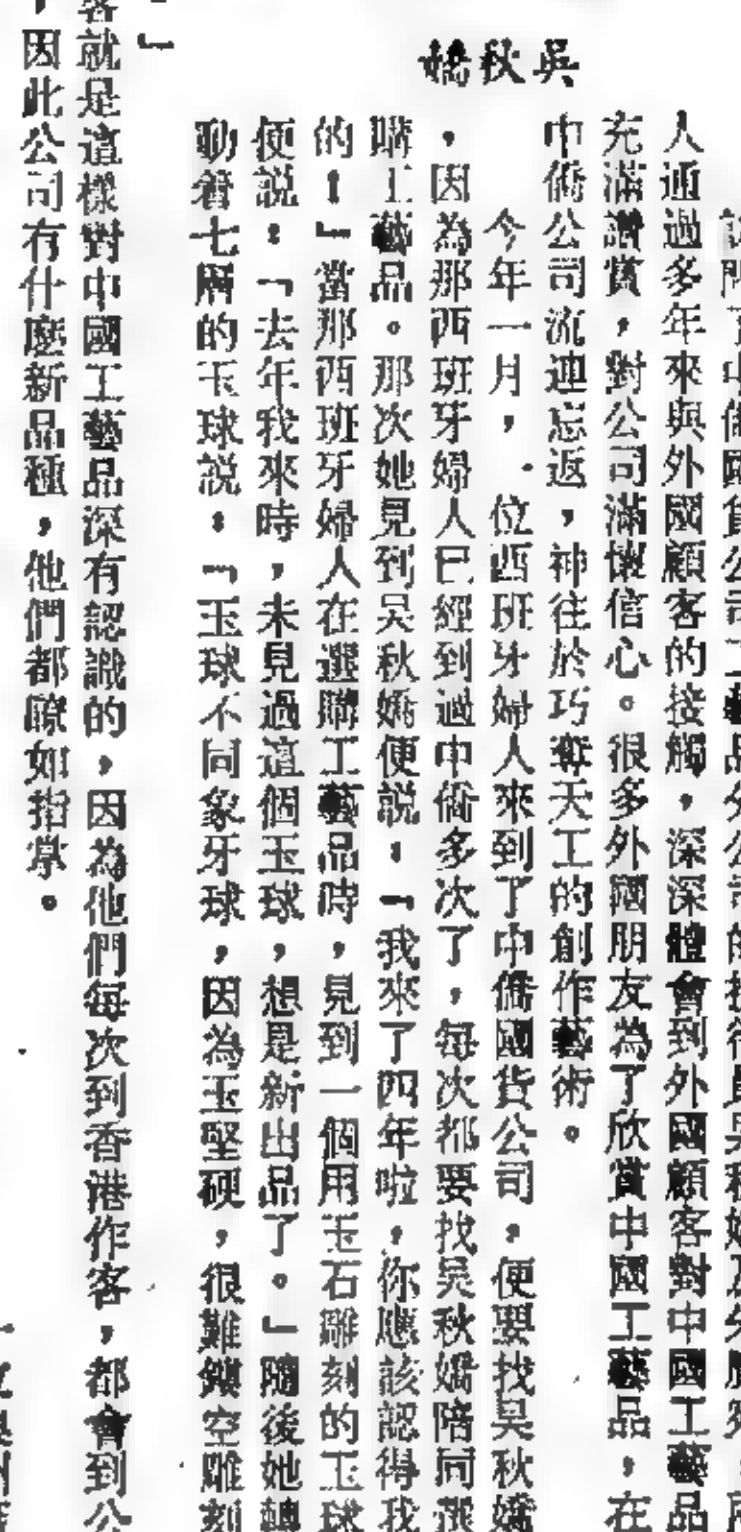 吳秋嬌
人通過多年來與外國顧客的接觸，深深體會到外國顧客對中國工藝品
充滿讚賞，對公司滿懷信心。很多外國朋友為了欣賞中國工藝品，在
中僑公司流連忘返，神往於巧奪天工的創作藝術。
今年一月，一位西班牙婦人來到了中僑國貨公司，便要找吳秋嬌
，因為那西班牙婦人已經到過中僑多次了，每次都要找吳秋嬌陪同選
購工藝品。那次她見到吳秋嬌便說：「我來了四年啦，你應該認得我
的！」當那西班牙婦人在選購工藝品時，見到一個用玉石雕刻的玉球
便說：「去年我來時，未見過這個玉球，想是新出品了。」隨後她轉
動着七層的玉球說：「玉球不同象牙球，因為玉堅硬，很難鏤空雕刻
。」
客就是這樣對中國工藝品深有認識的，因為他們每次到香港作客，都會到公
，因此公司有什麼新品種，他們都瞭如指掌。